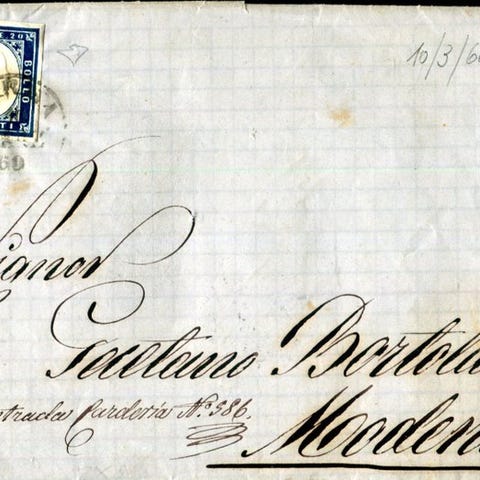 E 20
BOLLO
TI
60
10/3/60
ignor
Gaetano Bortola
trada Carderia N.º 586.
Modena